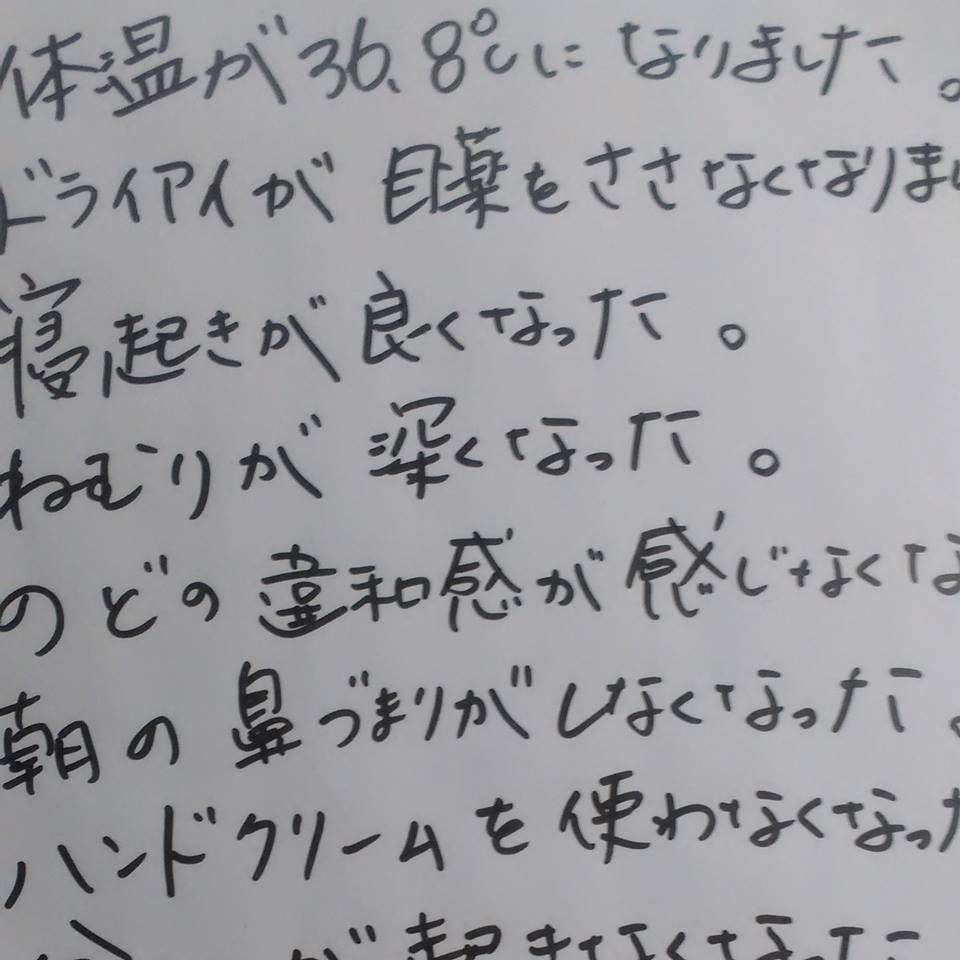 体温が36.8℃になりました。
ドライアイが目薬をささなくなりまし
寝起きが良くなった。
ねむりが深くなった。
のどの違和感が感じなくな
朝の鼻づまりがしなくなった。
ハンドクリームを使わなくなった
が起きなくなった